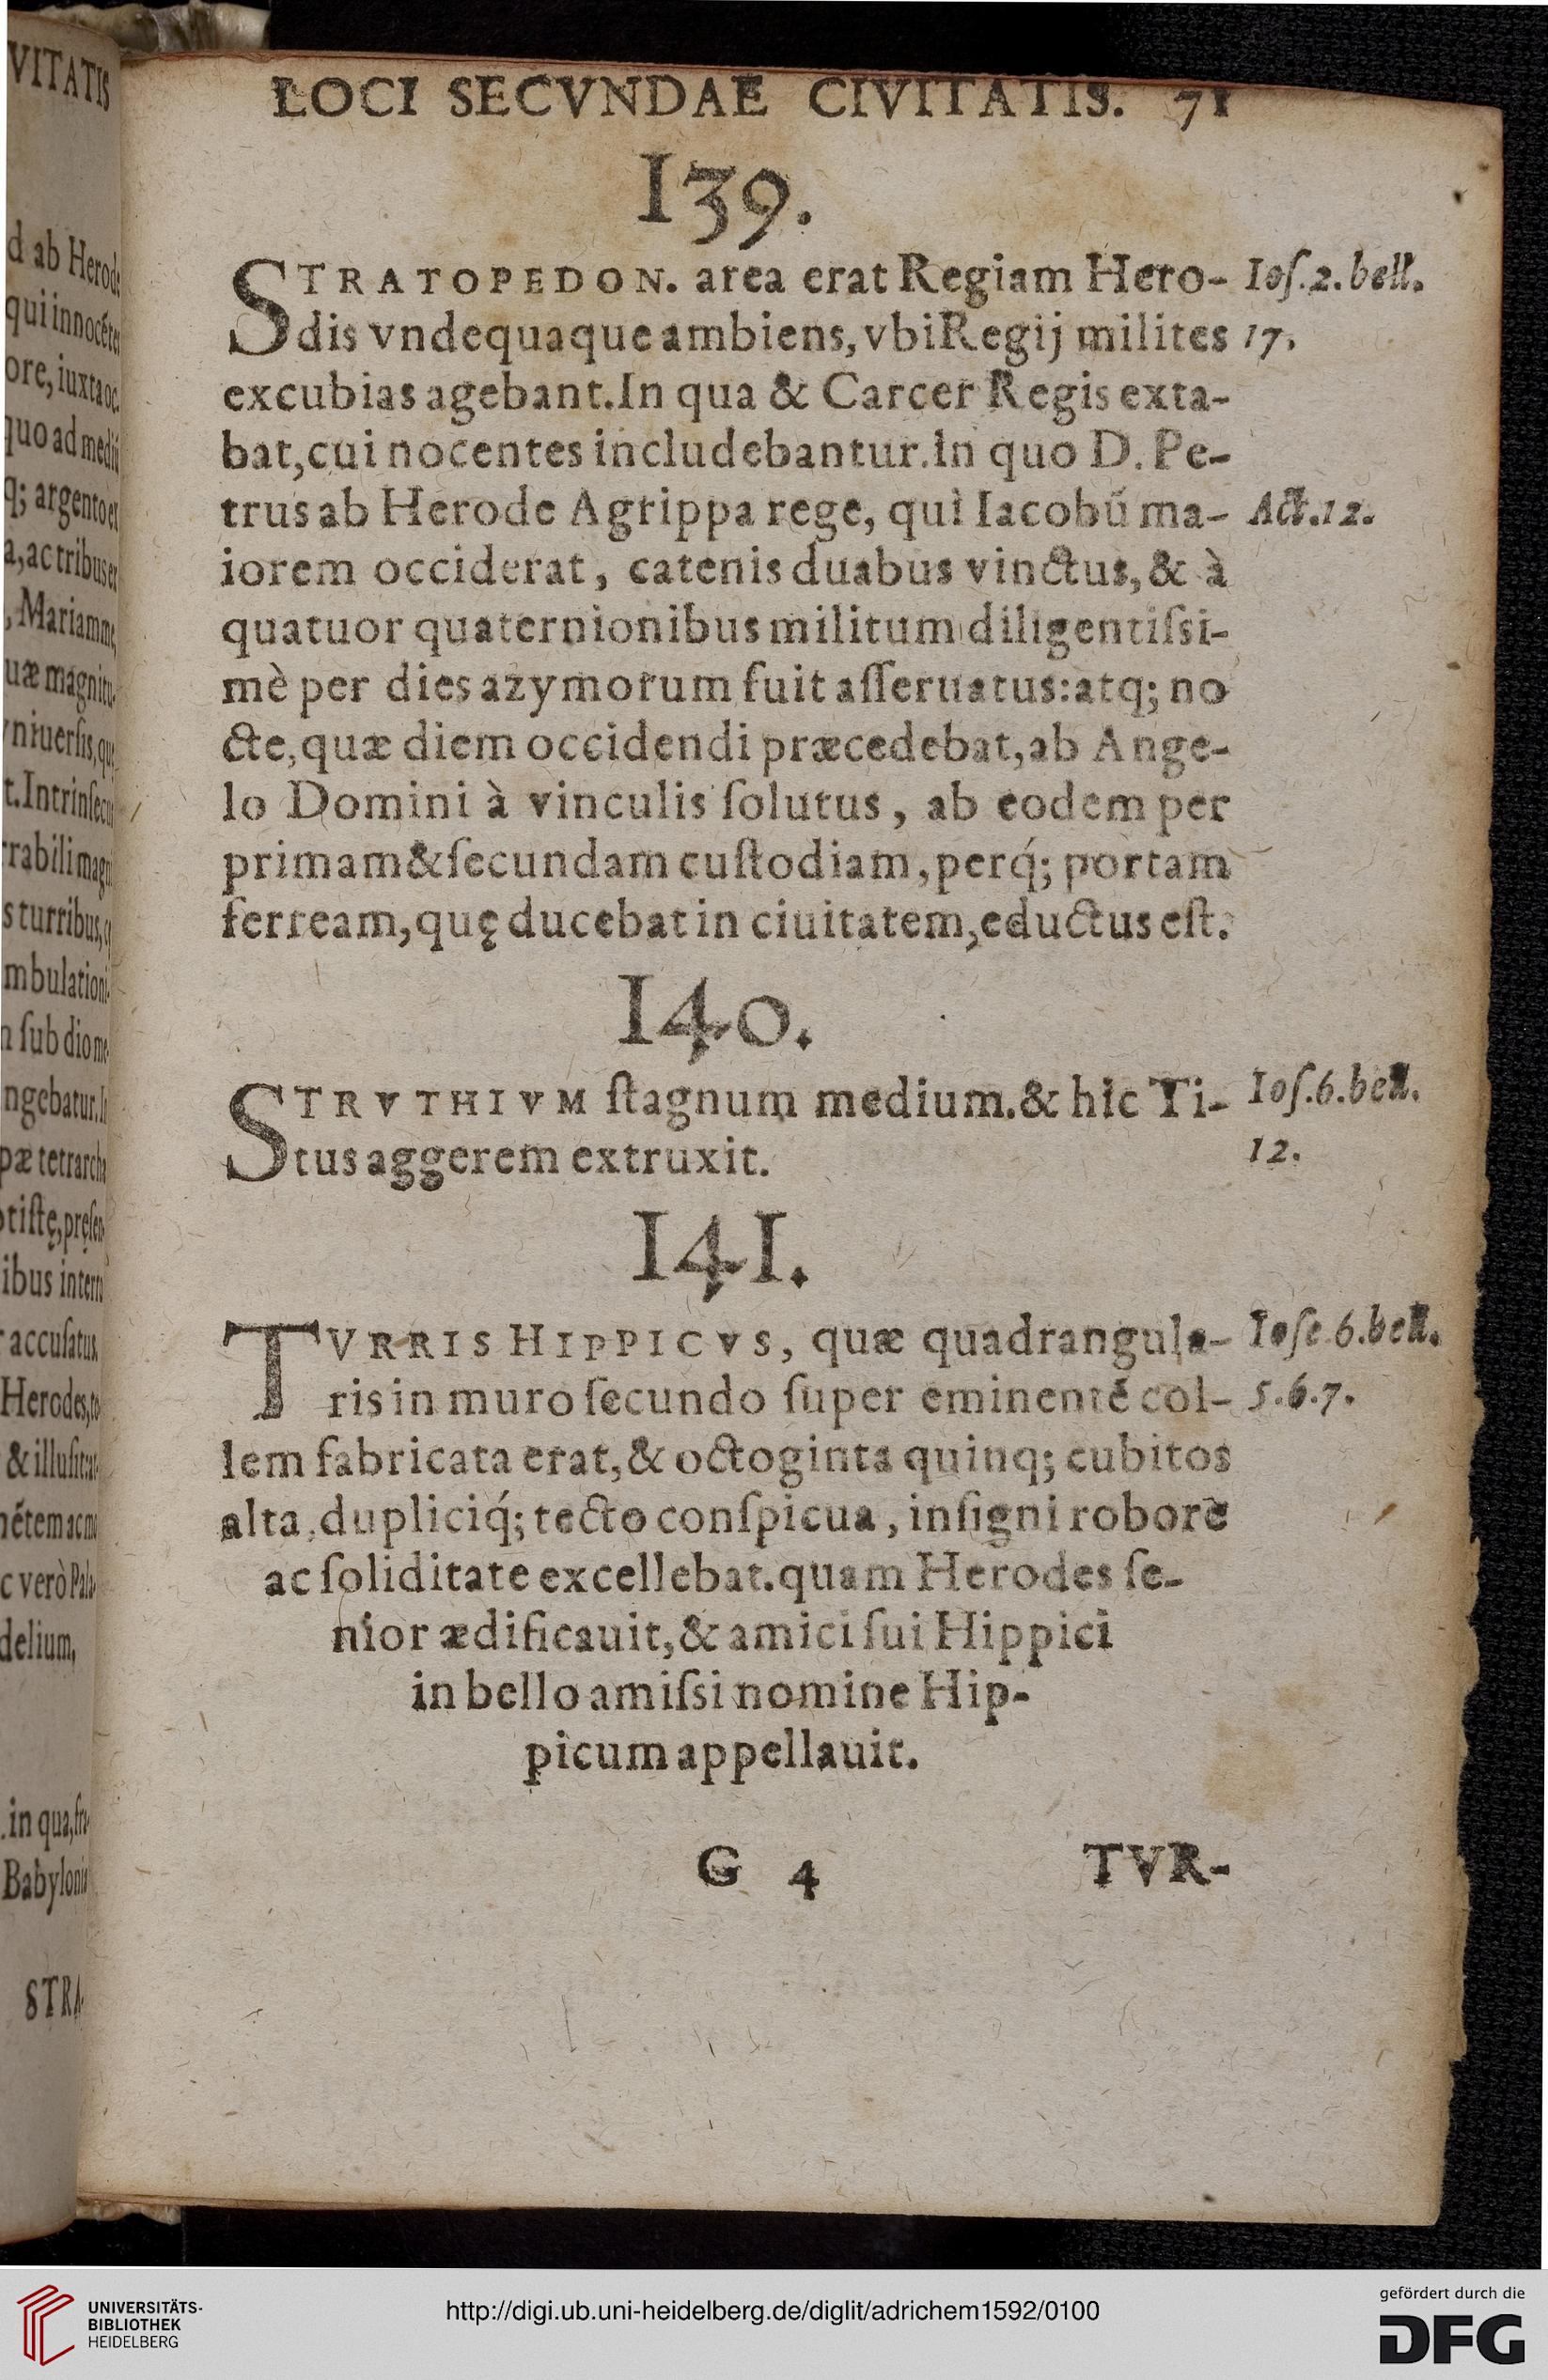 LOCI SECVNDAE CIVITATIS. 71
139.
STRATOPEDON. area erat Regiam Hero-
Ioſ.2.bell.
dis vndequaque ambiens, vbi Regij milites
17.
excubias agebant. In qua & Carcer Regis exta-
bat, cui nocentes includebantur. in quo D. Pe-
trus ab Herode Agrippa rege, qui Iacobú ma-
Act.12.
iorem occiderat, catenis duabus vinctus, & à
quatuor quaternionibus militum diligentiſsi-
mè per dies azymorum fuit aſſeruatus: atq; no
cte, quæ diem occidendi præcedebat, ab Ange-
lo Domini à vinculis ſolutus, ab eodem per
primam & ſecundam cuſtodiam, perq́; portam
ferream, quę ducebat in ciuitatem, eductus eſt.
140.
STRVTHIVM ſtagnum medium. & hic Ti-
Ioſ.6.bell.
tus aggerem extruxit.
12.
141.
TVRRIS HIPPICVS, quæ quadrangula-
Ioſe 6.bell.
ris in muro ſecundo ſuper eminenté col-
5.6.7.
lem fabricata erat, & octoginta quinq; cubitos
alta, dupliciq́; tecto conſpicua, inſigni robore
ac ſoliditate excellebat. quam Herodes ſe-
nior ædificauit, & amici ſui Hippici
in bello amiſsi nomine Hip-
picum appellauit.
G 4
TVR-
VITATIS
d ab Herod
qui innocéte
ore, iuxta oc
quo ad mediú
q; argento et
a, ac tribus ex
, Mariamme,
uæ magnitu-
vniuerſis, que
t. Intrinſecus
rrabili magni
s turribus, q
mbulationi-
n ſub dio me-
ngebatur. I
pæ tetrarcha
tiſtę, pręſen-
ibus interro
accuſatus,
Herodes, to
& illuſit
nétem ac mu
c verò Pala-
delium,
. in qua, fra-
Babylonia
STRA-
UNIVERSITÄTS-
BIBLIOTHEK
HEIDELBERG
http://digi.ub.uni-heidelberg.de/diglit/adrichem1592/0100
gefördert durch die
DFG